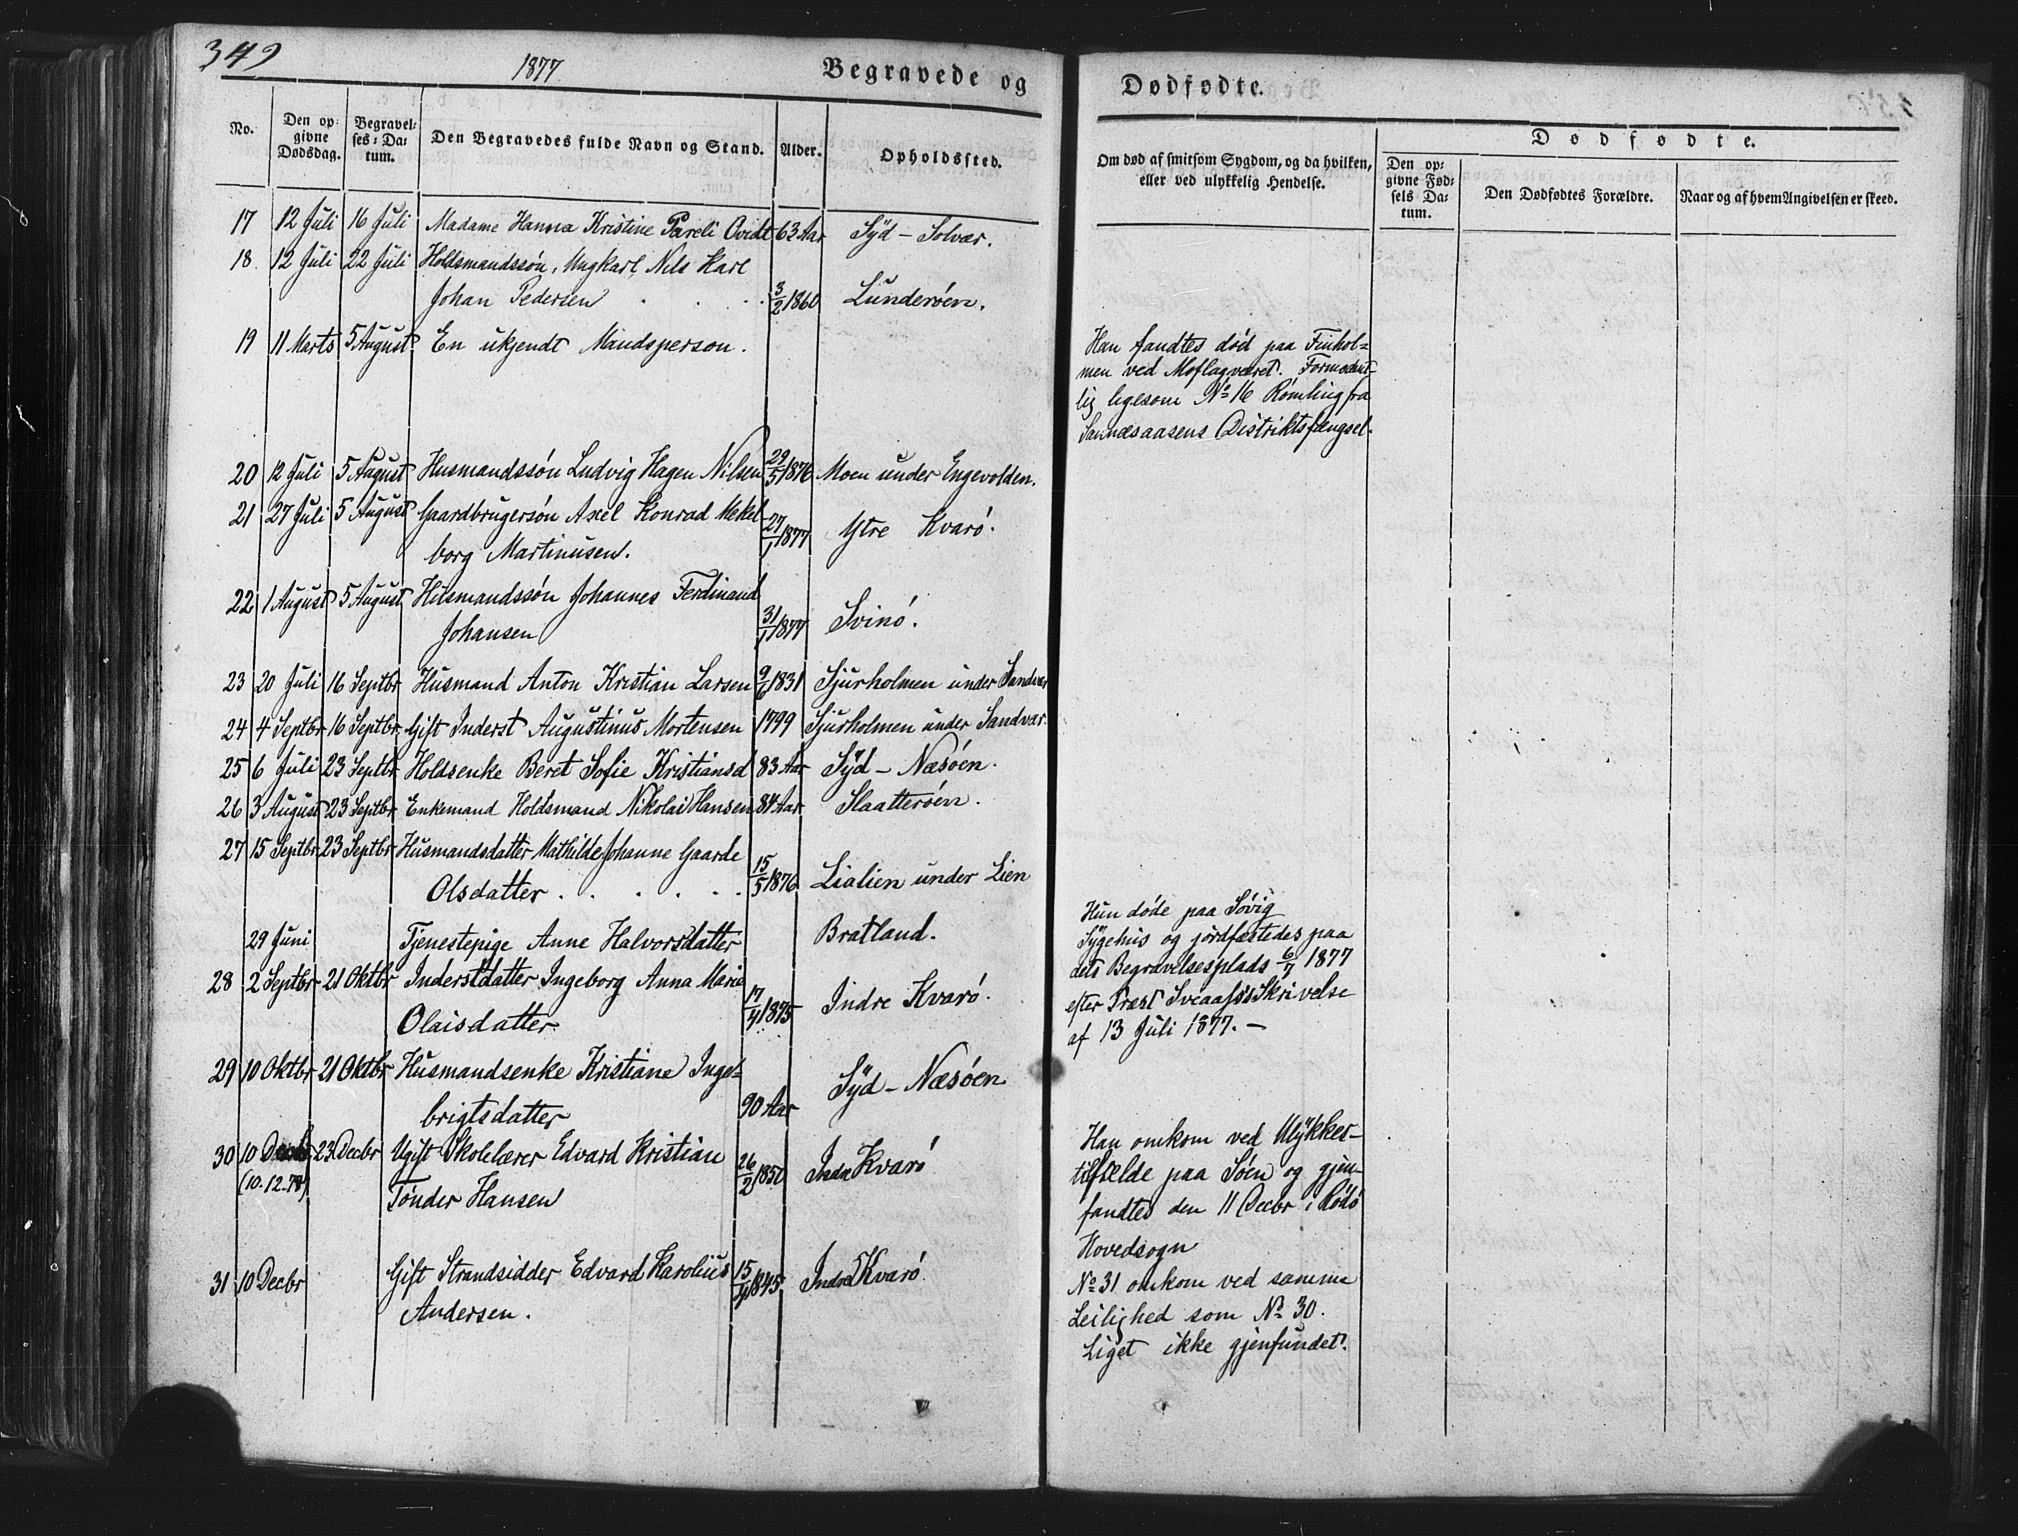 349
1877
Begravede og
Dødfødte.
No.
Den op-
givne
Dødsdag.
Begravel-
ses-Da-
tum.
Den Begravedes fulde Navn og Stand.
Alder.
Opholdssted.
Om død af smitsom Sygdom, og da hvilken,
eller ved ulykkelig Hendelse.
Dødfødte.
Den op-
givne Fød-
sels Da-
tum.
Den Dødfødtes Forældre.
Naar og af hvem Angivelsen er skeed.
17 12 Juli 16 Juli Madame Hanna Kristine Pareli Qvidt 63 Aar Syd-Solvær.
18. 12 Juli 22 Juli Holdsmandssøn, Ungkarl, Nils Karl
Johan Pedersen 3/2 1860 Lunderøen.
19 11 Marts 5 August En ukjendt Mandsperson.
Han fandtes død paa Finhol-
men ved Moflagværet. Formodent-
lig ligesom No 16 Rømling fra
Sannæsaasens Distriktsfængsel.
20 12 Juli 5 August Husmandssøn Ludvig Hagen Nilsen 29/5 1876 Moen under Engevolden.
21 27 Juli 5 August Gaardbrugersøn Axel Konrad Mekel-
borg Martinusen. 27/1 1877 Ytre Kvarø.
22 1 August 5 August Husmandssøn Johannes Ferdinand
Johansen 31/1 1877 Svinø.
23 20 Juli 16 Septbr Husmand Anton Kristian Larsen 9/6 1831 Sjurholmen under Sandvær
24 4 Septbr 16 Septbr Gift Inderst Augustinus Mortensen 1799 Sjurholmen under Sandvær.
25 6 Juli 23 Septbr Holdsenke Beret Sofie Kristiansd 83 Aar Syd-Næsøen.
26 3 August 23 Septbr Enkemand Holdsmand Nikolai Hansen 84 Aar Slaatterøen.
27 15 Septbr 23 Septbr Husmandsdatter Mathilde Johanne Gaarde
Olsdatter 15/5 1876 Lialien under Lien
29 Juni Tjenestepige Anne Halvorsdatter Bratland.
Hun døde paa Søvig
Sygehus og jordfæstedes paa
dets Begravelsesplads 6/7 1877
efter Præst Skrivelse
af 13 Juli 1877. -
28 2 Septbr 21 Oktbr Inderstdatter Ingeborg Anna Marie
Olaisdatter 17/4 1875 Indre Kvarø.
29 10 Oktbr 21 Oktbr Husmandsenke Kristiane Inge-
brigtsdatter 90 Aar Syd-Næsøen
30 10 Decbr 23 Decbr Ugift Skolelærer Edvard Kristian
(10-12-78)
Tønder Hansen 26/2 1850 Indre Kvarø
Han omkom ved Ulykkes-
tilfælde paa Søen og gjen-
fandtes den 11 Decbr i Rødø
Hovedsogn
31 10 Decbr Gift Strandsidder Edvard Karolius
Andersen. 15/4 1845 Indre Kvarø.
No 31 omkom ved samme
Leilighed som No 30.
Liget ikke gjenfundet.